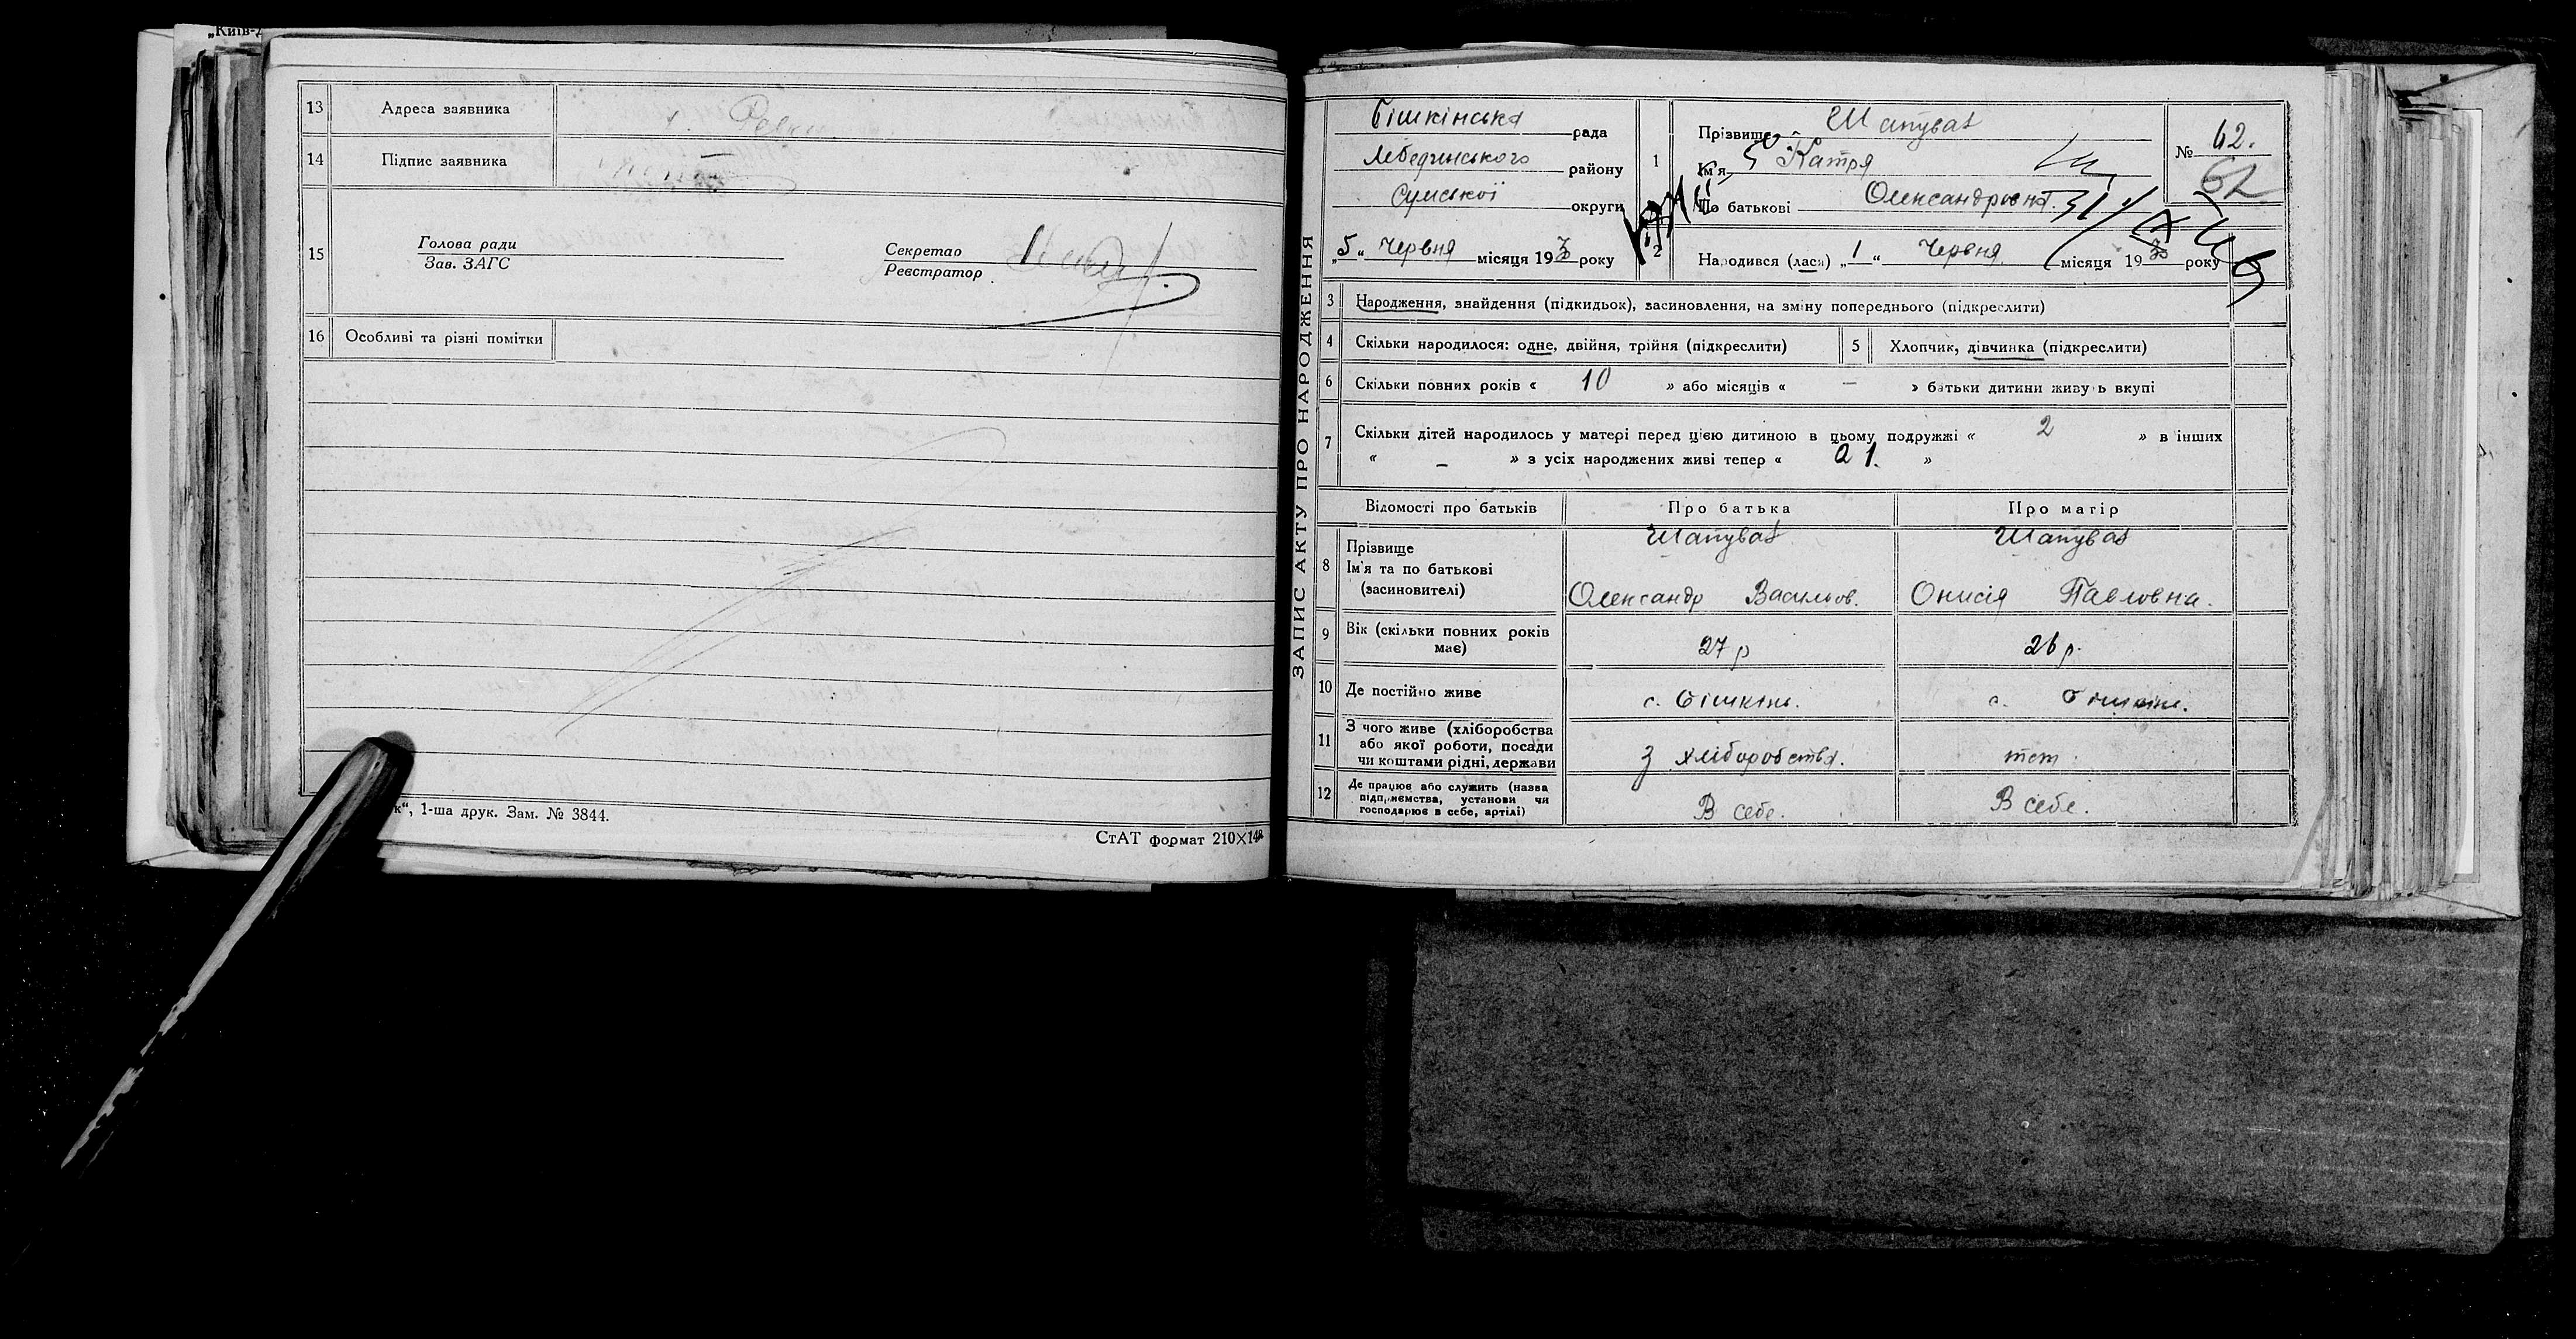 „Київ-Д
13 Адреса заявника
14 Підпис заявника
15 Голова ради
Зав. ЗАГС
Секретар
Реєстратор
16 Особливі та різні помітки
к“, 1-ша друк. Зам. № 3844.
СтАТ формат 210×148
ЗАПИС АКТУ ПРО НАРОДЖЕННЯ
Бішкінська рада
Лебединського району
Сумської округи
„5“ Червня місяця 193 року
1 Прізвище Шаповал
Ім'я Катря
По батькові Олександровна
№ 62.
62
2 Народився (лася) „1“ Червня місяця 19 року
3 Народження, знайдення (підкидьок), засиновлення, на зміну попереднього (підкреслити)
4 Скільки народилося: одне, двійня, трійня (підкреслити)
5 Хлопчик, дівчинка (підкреслити)
6 Скільки повних років « 10 » або місяців « – » батьки дитини живуть вкупі
7 Скільки дітей народилось у матері перед цією дитиною в цьому подружжі « 2 » в інших
« – » з усіх народжених живі тепер « 1. »
Відомості про батьків Про батька Про матір
8 Прізвище
Ім'я та по батькові
(засиновителі)
Шапувал Шапувал
Олександр Васильов. Онисія Павловна.
9 Вік (скільки повних років має) 27 р 26 р.
10 Де постійно живе с. Бішкінь. с. Бішкінь.
11 З чого живе (хліборобства
або якої роботи, посади
чи коштами рідні, держави
З хліборобства. теж
12 Де працює або служить (назва
підприємства, установи чи
господарює в себе, артілі)
В себе. В себе.